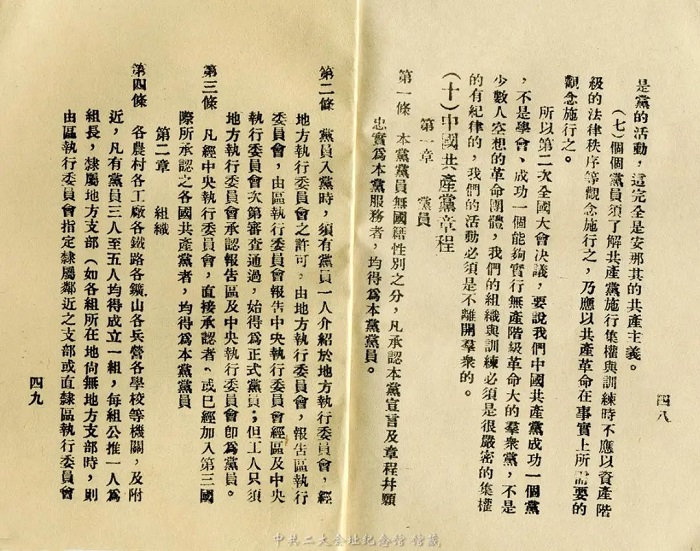 四八
是黨的活動，這完全是安那其的共產主義。
（七）個個黨員須了解共產黨施行集權與訓練時不應以資產階
級的法律秩序等觀念施行之，乃應以共產革命在事實上所需要的
觀念施行之。
所以第二次全國大會決議，要說我們中國共產黨成功一個黨
，不是學會、成功一個能夠實行無產階級革命大的羣衆黨，不是
少數人空想的革命團體，我們的組織與訓練必須是很嚴密的集權
的有紀律的，我們的活動必須是不離開羣衆的。
（十）中國共產黨章程
第一章　黨員
第一條　本黨黨員無國籍性別之分，凡承認本黨宣言及章程并願
忠實爲本黨服務者，均得爲本黨黨員。
第二條　黨員入黨時，須有黨員一人介紹於地方執行委員會，經
地方執行委員會之許可，由地方執行委員會，報告區執行
委員會，由區執行委員會報告中央執行委員會經區及中央
執行委員會次第審查通過，始得爲正式黨員；但工人只須
地方執行委員會承認報告區及中央執行委員會卽爲黨員。
第三條　凡經中央執行委員會，直接承認者、或已經加入第三國
際所承認之各國共產黨者，均得爲本黨黨員
第二章　組織
第四條　各農村各工廠各鐵路各鑛山各兵營各學校等機關，及附
近，凡有黨員三人至五人均得成立一組，每組公推一人爲
組長，隸屬地方支部（如各組所在地尙無地方支部時，則
由區執行委員會指定隸屬鄰近之支部或直隸區執行委員會
四九
中共二大会址纪念馆 馆藏